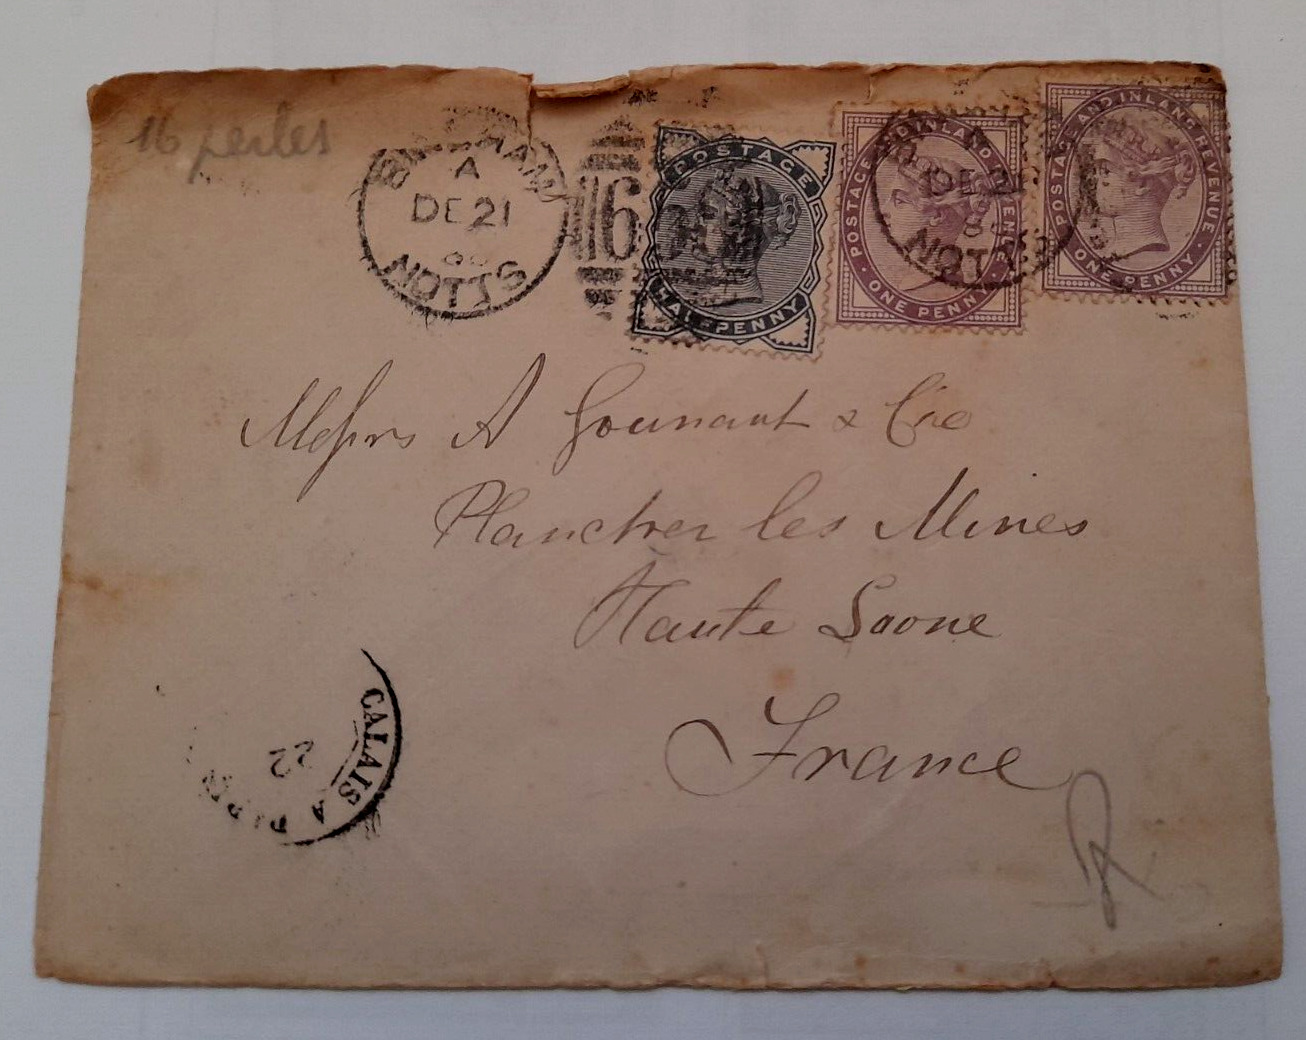 16 perles
A
DE 21
NOTTS
POSTAGE
HALFPENNY
POSTAGE AND INLAND REVENUE
ONE PENNY
DE 21
NOTTS
POSTAGE AND INLAND REVENUE
ONE PENNY
Messrs A Gounant & Cie
Plancher les Mines
Haute Saone
France
CALAIS A PARIS
22
R